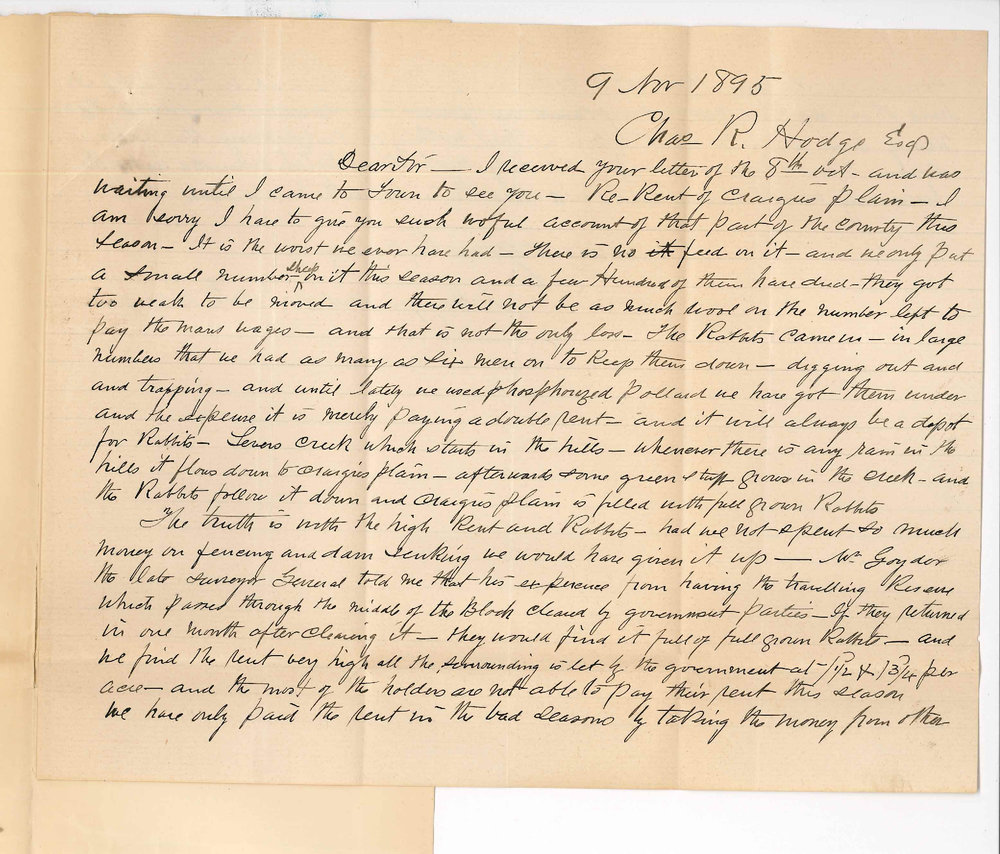 9 Nov 1895
Chas R. Hodge Esq
Dear Sir — I received your letter of the 8th oct - and was
waiting until I came to Town to see you — Re-Rent of Craigies plain — I
am sorry I have to give you such woful account of that part of the country this
season — It is the worst we ever have had — There is no feed on it — and we only put
a small number sheep on it this season and a few Hundred of them have died — they got
too weak to be moved and there will not be as much wool on the number left to
pay the mans wages — and that is not the only loss — The Rabbits came in — in large
numbers that we had as many as six men on to keep them down — digging out and
and trapping — and until lately we used phosphorized pollard we have got them under
and the expense it is merely paying a double rent — and it will always be a depot
for Rabbits — Levers creek which starts in the hills — whenever there is any rain in the
hills it flows down to Craigies plain — afterwards some green stuff grows in the creek — and
the Rabbits follow it down and Craigies plain is filled with full grown Rabbits
The truth is with the high Rent and Rabbits — had we not spent so much
money on fencing and dam sinking we would have given it up — Mr Goyder
the late Surveyor General told me that his experience from having the travelling Reserve
which passes through the middle of the Block cleared by government parties — If they returned
in one month after clearing it — they would find it full of full grown Rabbits — and
we find the rent very high all the surrounding is let by the government at 1/2 & 3/4 per
acre — and the most of the holders are not able to pay their rent this season
we have only paid the rent in the bad seasons by taking the money from other